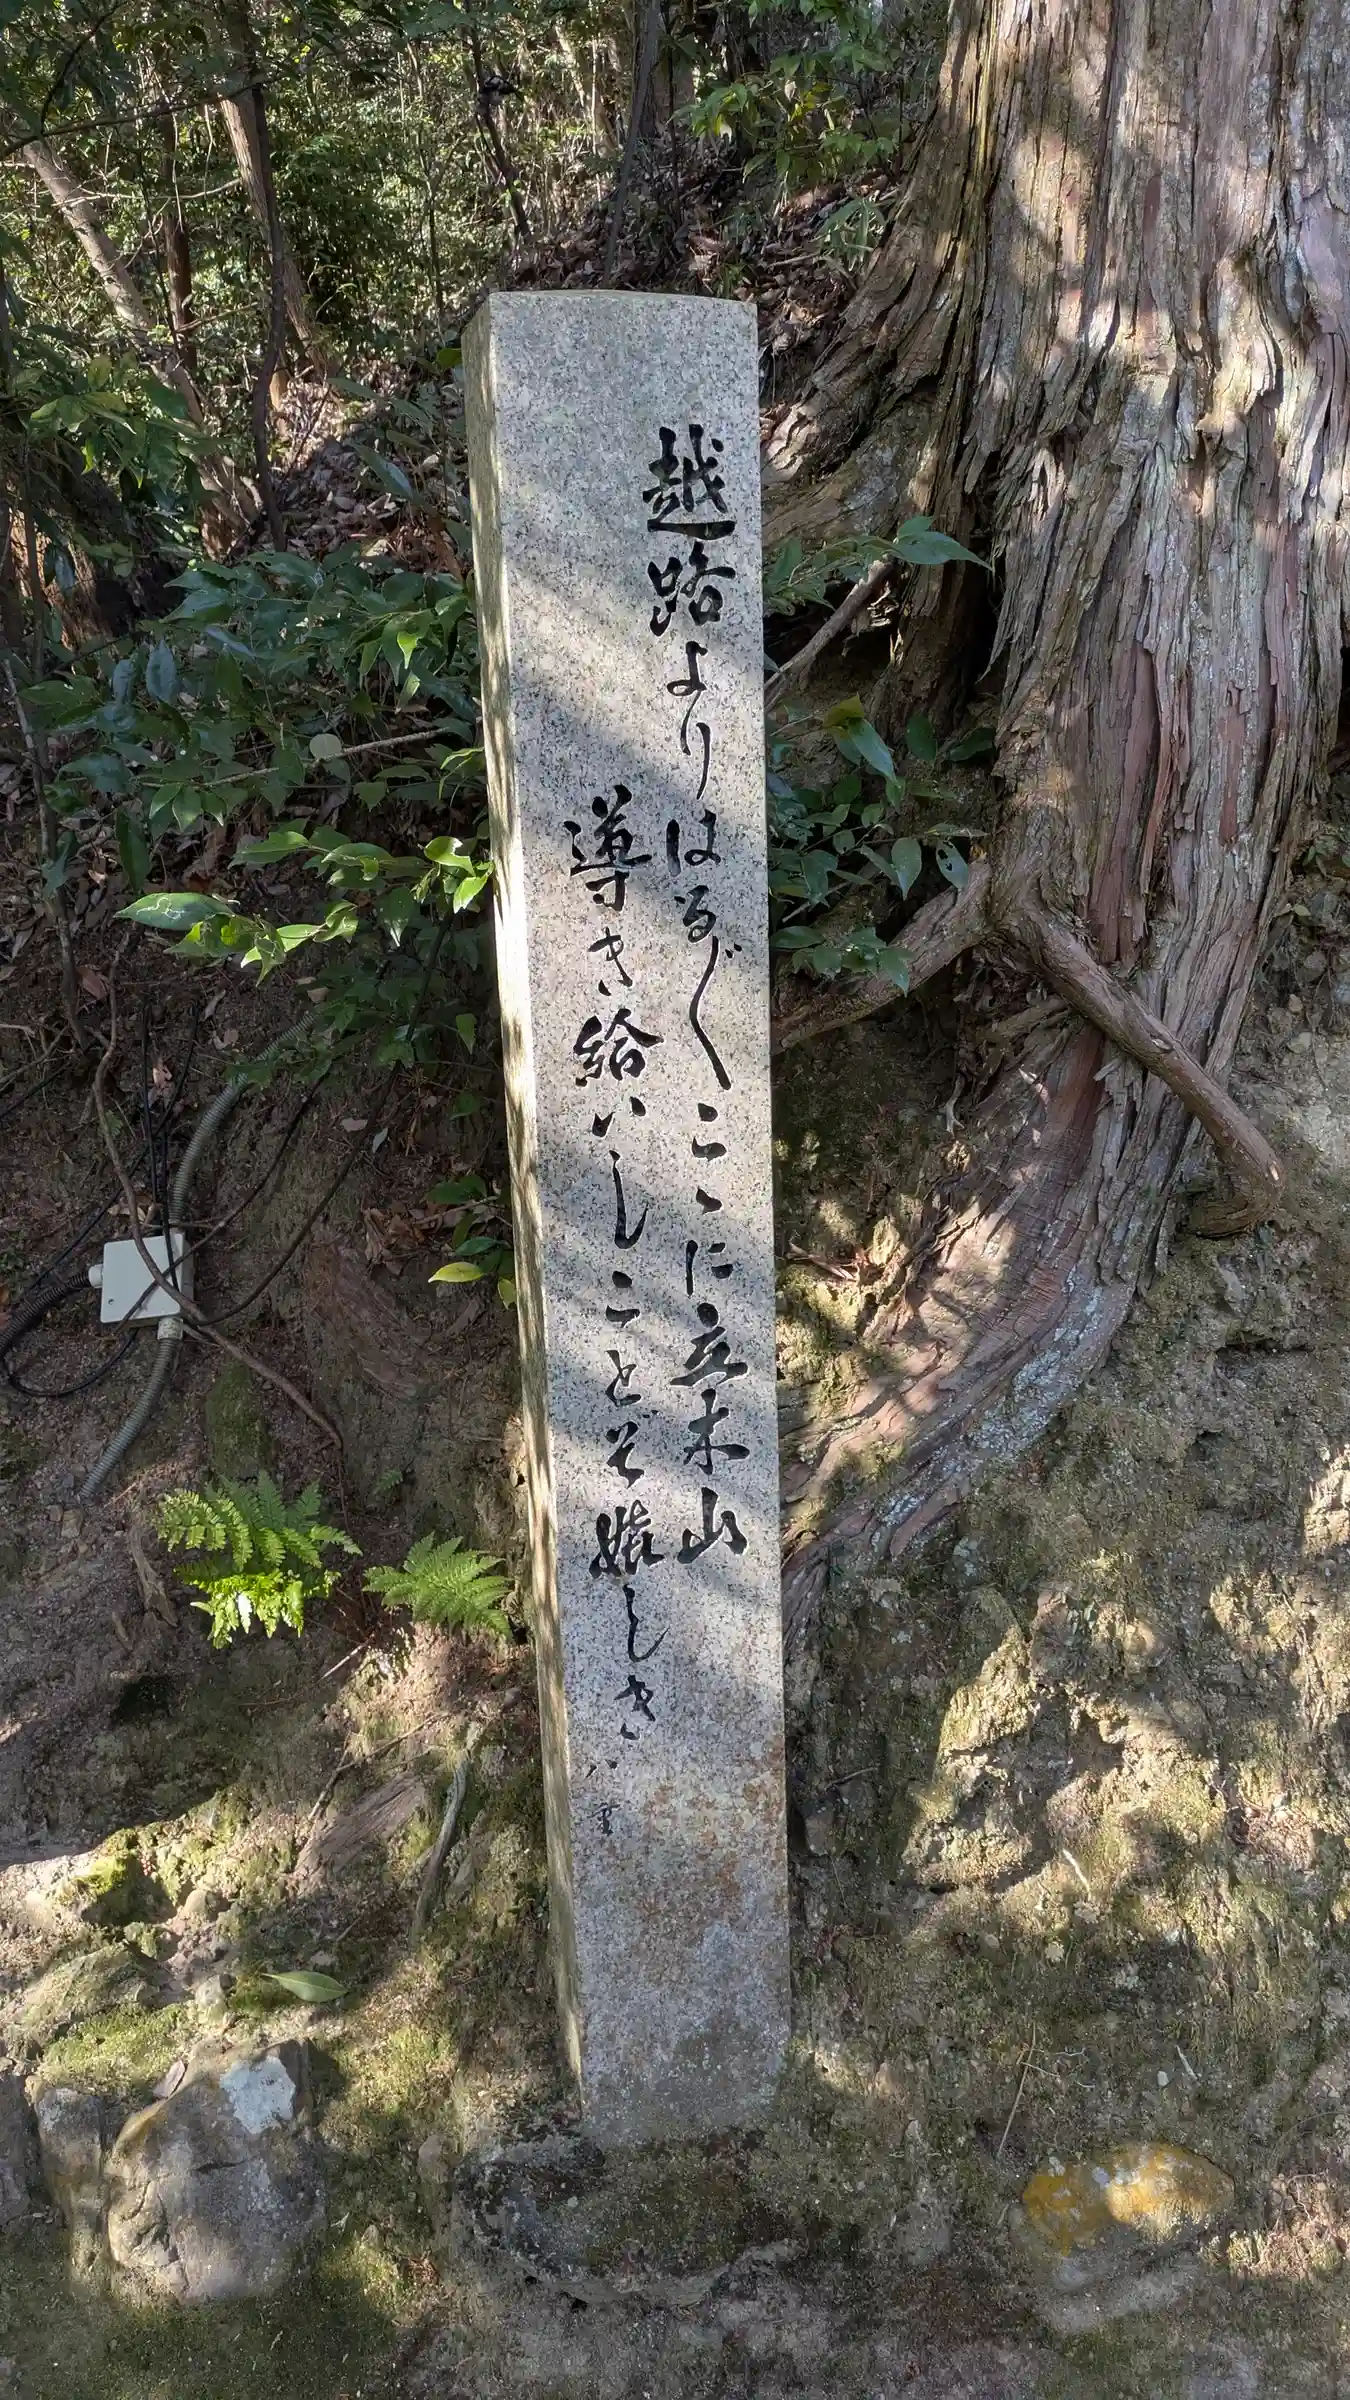 越路よりはるゞ〱こゝに立木山
導き給いしことぞ嬉しき
八重